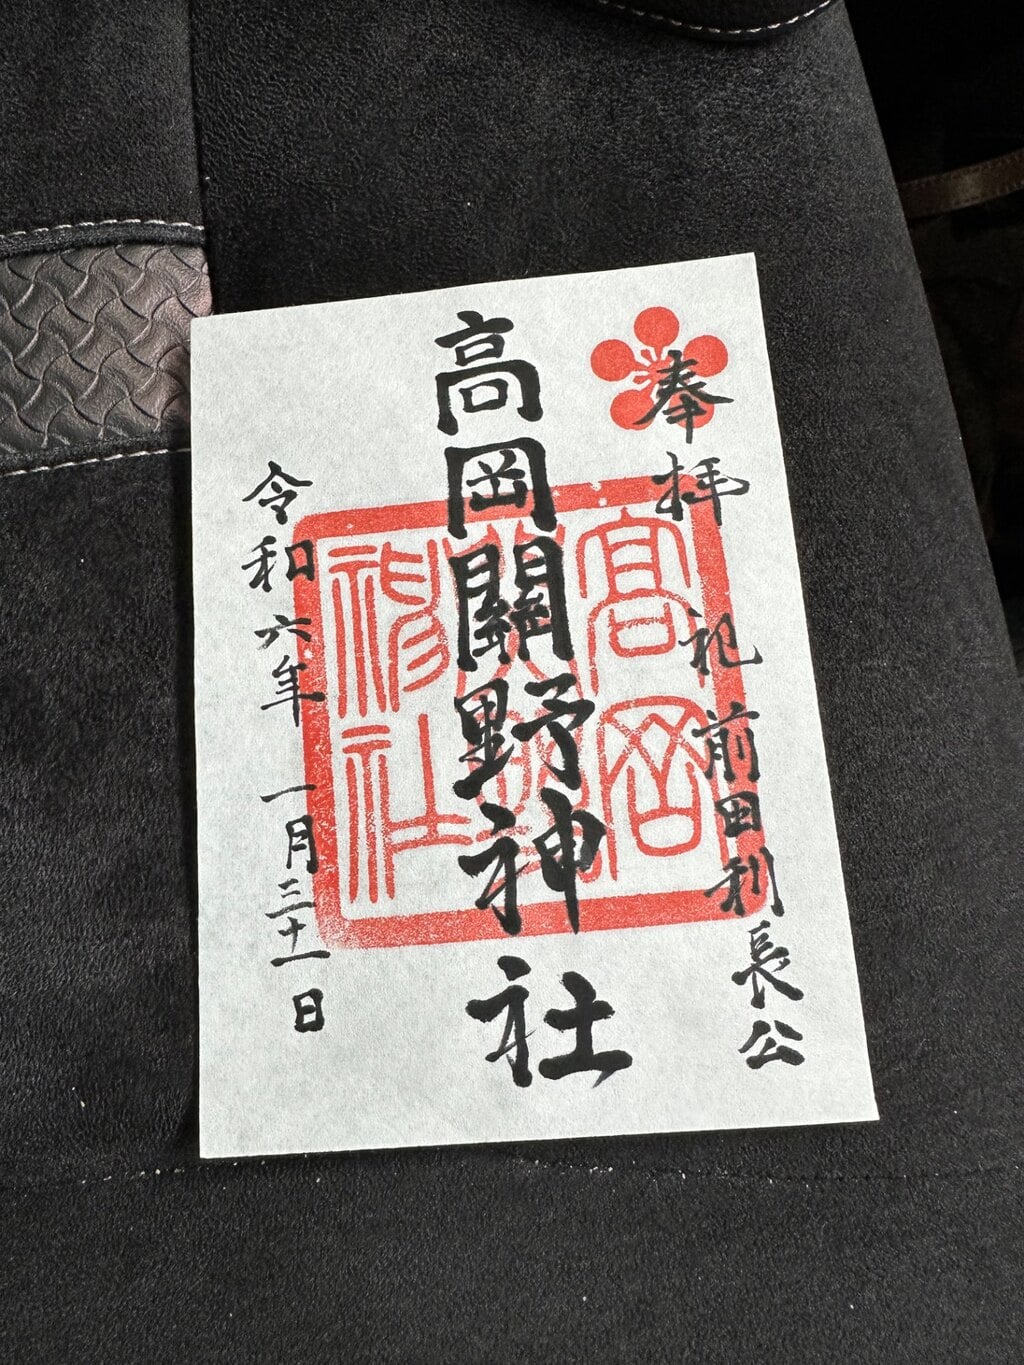 奉拝 祀 前田利長公
高岡關野神社
令和六年 一月三十一日
高岡
関野
神社